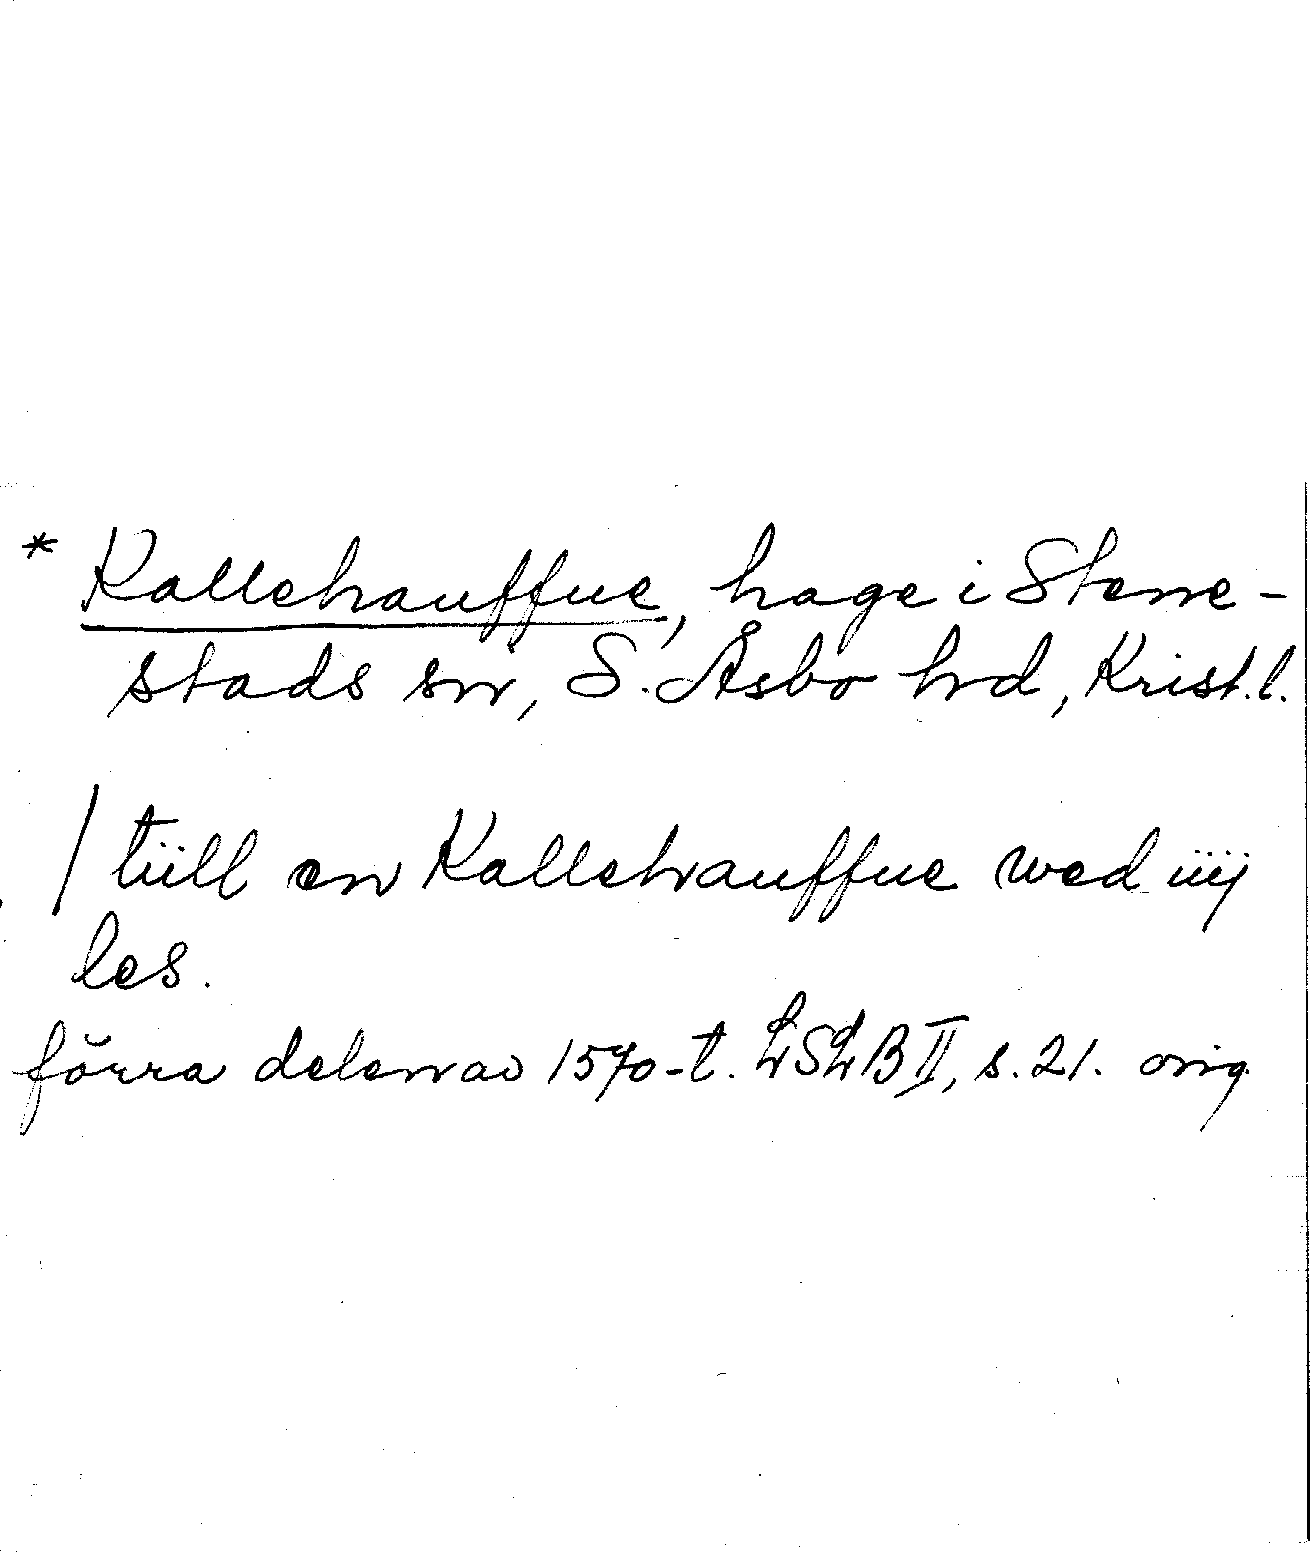 * Kallehauffue, hage i Stene-
stads sn, S. Åsbo hrd, Krist. l.
/ tüll en Kallehauffue wed iiij
les.
förra delen av 1570-t. LSLB II, s. 21. orig.